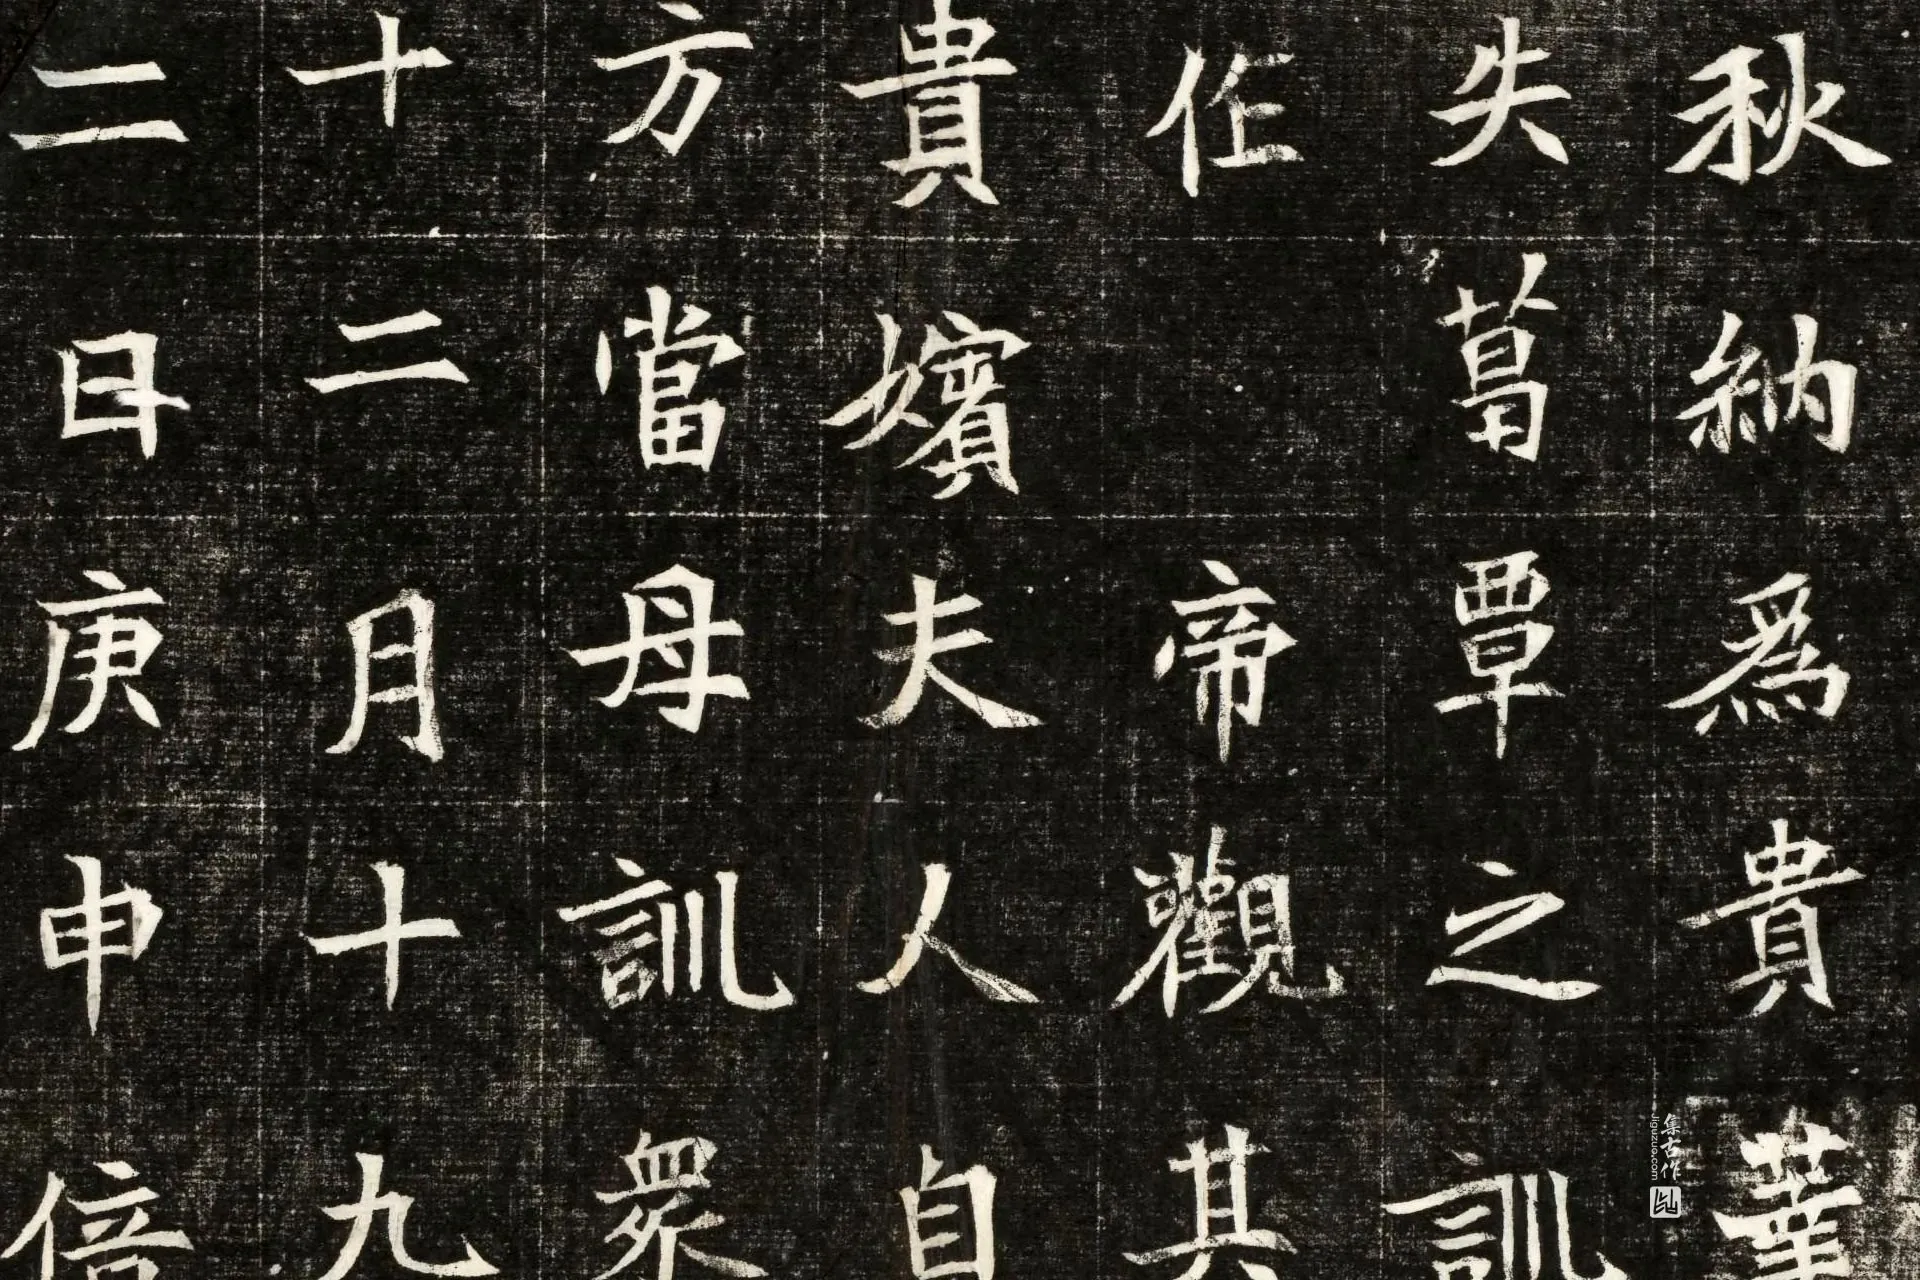 秋納為貴華
失葛覃之訓
作 帝觀其
貴嬪夫人自
方當母訓衆
十二月十九
二日庚申倍
集古作
jiguzuo.com